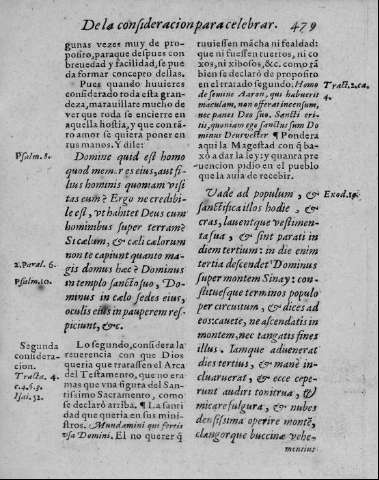 De la consideracion para celebrar. 479
gunas vezes muy de pro-
posito, para que despues con
breuedad y facilidad, se pue
da formar concepto dellas.
Pues quando huuieres
considerado toda esta gran
deza, marauillate mucho
de ver que toda se encierre en
aquella hostia, y que con tã-
to amor se quiera poner en
tus manos. Y dile:
Psalm. 8.
Domine quid est homo
quod memor es eius, aut fi-
lius hominis quoniam visi
tas eum? Ergo ne credibi-
le est, vt habitet Deus cum
hominibus super terram?
Si cælum, & cæli cælorum
non te capiunt quanto ma-
gis domus hæc? Dominus
in templo sancto suo, Do-
minus in cælo sedes eius,
oculi eius in pauperem res-
piciunt, &c.
2. Paral. 6.
Psalm. 10.
Segunda
considera-
cion.
Tracta. 4.
c. 4. 5. 5.
Isai. 52.
Lo segundo, considera la
reuerencia con que Dios
queria que tratassen el Arca
del Testamento, que no era
mas que vna figura del San-
tissimo Sacramento, como
se declarò arriba. ¶ La santi
dad que queria en sus mini-
stros. Mundamini que fertis
vasa Domini. El no querer q̃
tuuiessen mãcha ni fealdad:
que ni fuessen tuertos, ni co
xos, ni xibosos, &c. como tã
bien se declarò de proposito
en el tratado segundo: Homo
de semine Aaron, qui habuerit
maculam, non offerat incensum,
nec panes Deo suo. Sancti eri-
tis, quoniam ego sanctus sum Do
minus Deus vester. ¶ Pondera
aqui la Magestad con q̃ ba-
xò a dar la ley: y quanta pre
uencion pidio en el pueblo
que la auia de recebir.
Tract. 2. ca.
4.
Vade ad populum, &
sanctifica illos hodie, &
cras, lauentque vestimen-
ta sua, & sint parati in
diem tertium: in die enim
tertia descendet Dominus
super montem Sinay: con-
stituesque terminos populo
per circuitum, & dices ad
eos: cauete, ne ascendatis in
montem, nec tangatis fines
illius. Iamque aduenerat
dies tertius, & mane in-
claruerat, & ecce cepe-
runt audiri tonitrua, &
micare fulgura, & nubes
densissima operire montẽ,
clangorque buccinæ vehe-
mentius
Exod. 19.